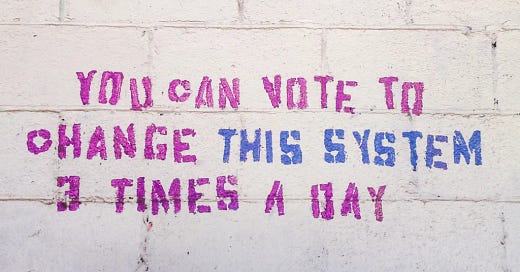 YOU CAN VOTE TO
CHANGE THIS SYSTEM
3 TIMES A DAY